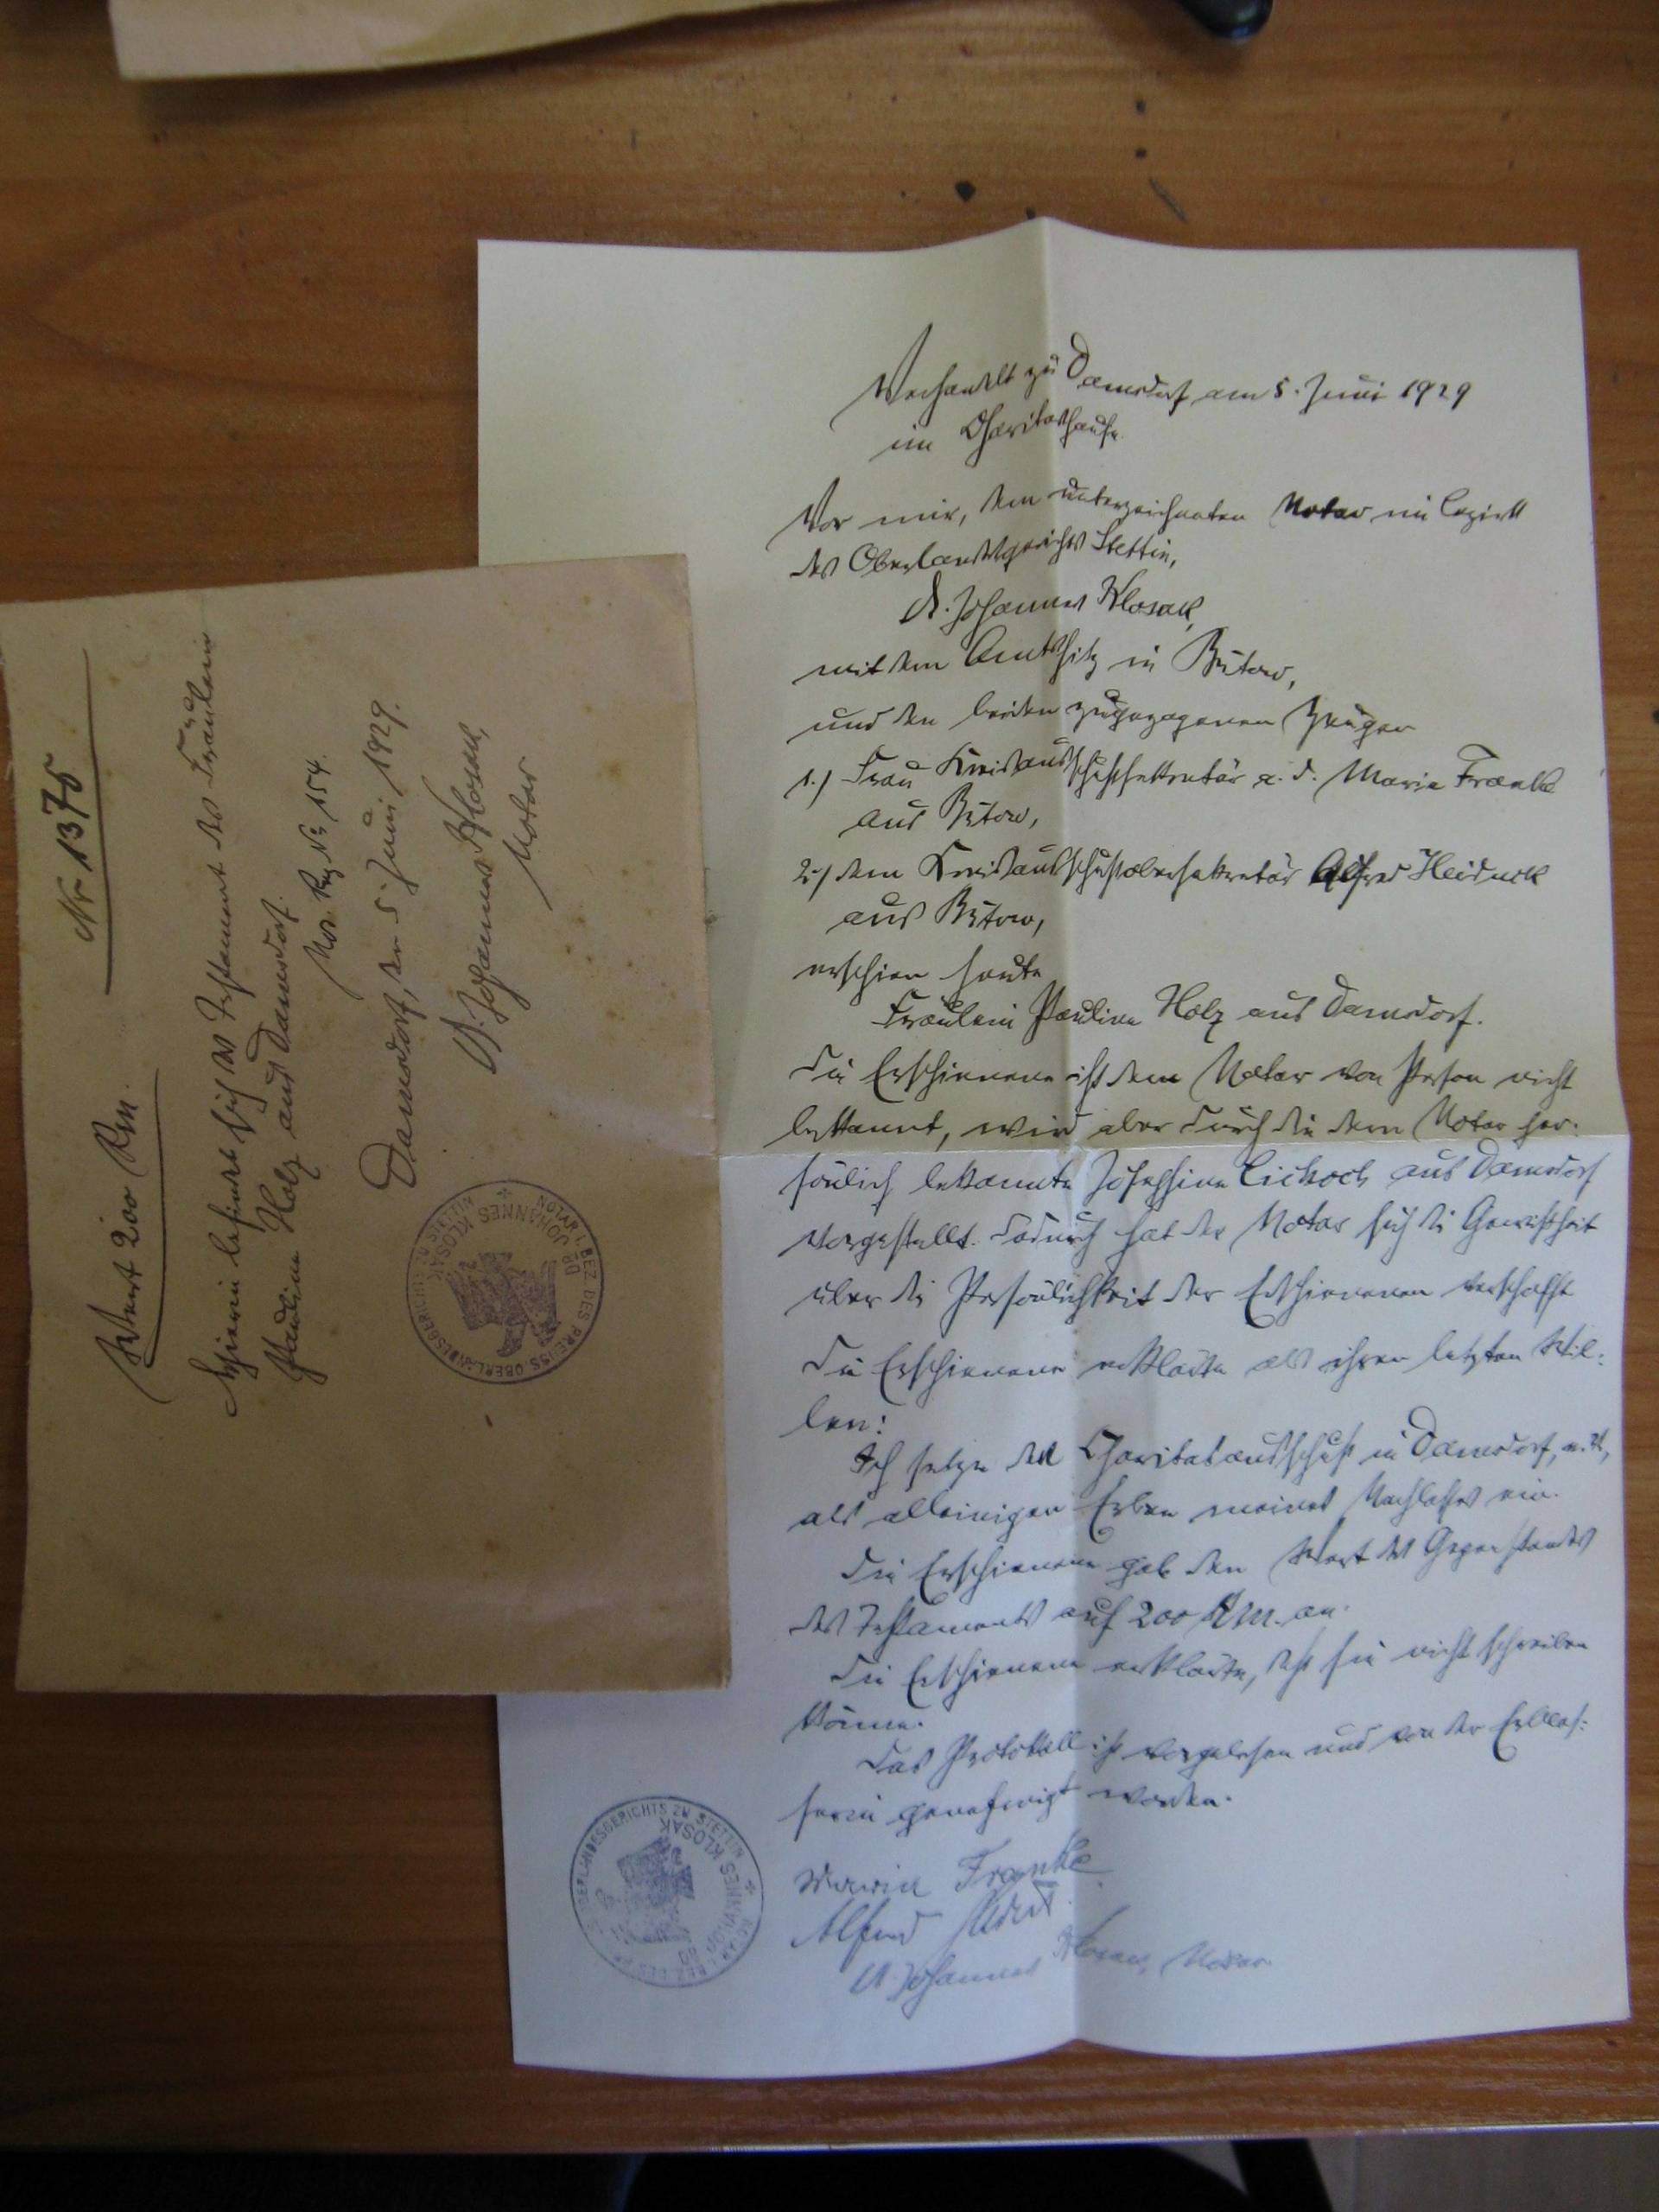 Nr. 1375
Wert 200 Rm.
Hierin befindet sich das Testament des Fräulein
Pauline Holz aus Damsdorf.
Not. Reg. Nr. 154.
Damsdorf, den 5. Juni 1929.
Dr. Johannes Klosak,
Notar
DR. JOHANNES KLOSAK
NOTAR I. BEZ. DES PREUSS. OBERLANDESGERICHTS ZU STETTIN
Verhandelt zu Damsdorf am 5. Juni 1929
im Charitashause.
Vor mir, dem unterzeichneten Notar im Bezirk
des Oberlandesgerichts Stettin,
Dr. Johannes Klosak,
mit dem Amtssitz in Bütow,
und den beiden zugezogenen Zeugen
1.) Frau Kreisausschußsekretär a. D. Marie Franke
aus Bütow,
2.) dem Kreisausschußobersekretär Alfred Heiduck
aus Bütow,
erschien heute
Fräulein Pauline Holz aus Damsdorf.
Die Erschienene ist dem Notar von Person nicht
bekannt, wird aber durch die dem Notar per-
sönlich bekannte Josephine Cickoch aus Damsdorf
vorgestellt. Dadurch hat der Notar sich die Gewißheit
über die Persönlichkeit der Erschienenen verschafft
Die Erschienene erklärte als ihren letzten Wil-
len:
Ich setze den Charitasausschuß in Damsdorf,
als alleinigen Erben meines Nachlasses ein.
Die Erschienene gab den Wert des Gegenstandes
des Testaments auf 200 RM. an.
Die Erschienene erklärte, daß sie nicht schreiben
könne.
Das Protokoll ist vorgelesen und von der Erblas-
serin genehmigt worden.
Marie Franke
Alfred Heiduck.
Dr. Johannes Klosak, Notar.
DR. JOHANNES KLOSAK
NOTAR I. BEZ. DES PREUSS. OBERLANDESGERICHTS ZU STETTIN